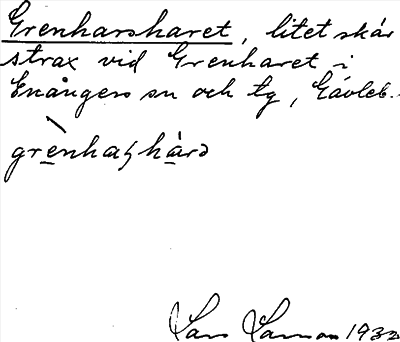 Grenharsharet, litet skär
strax vid Grenharet i
Enångers sn och tg, Gävleb.
grènhaʂhárə
Lars Larsson 1932